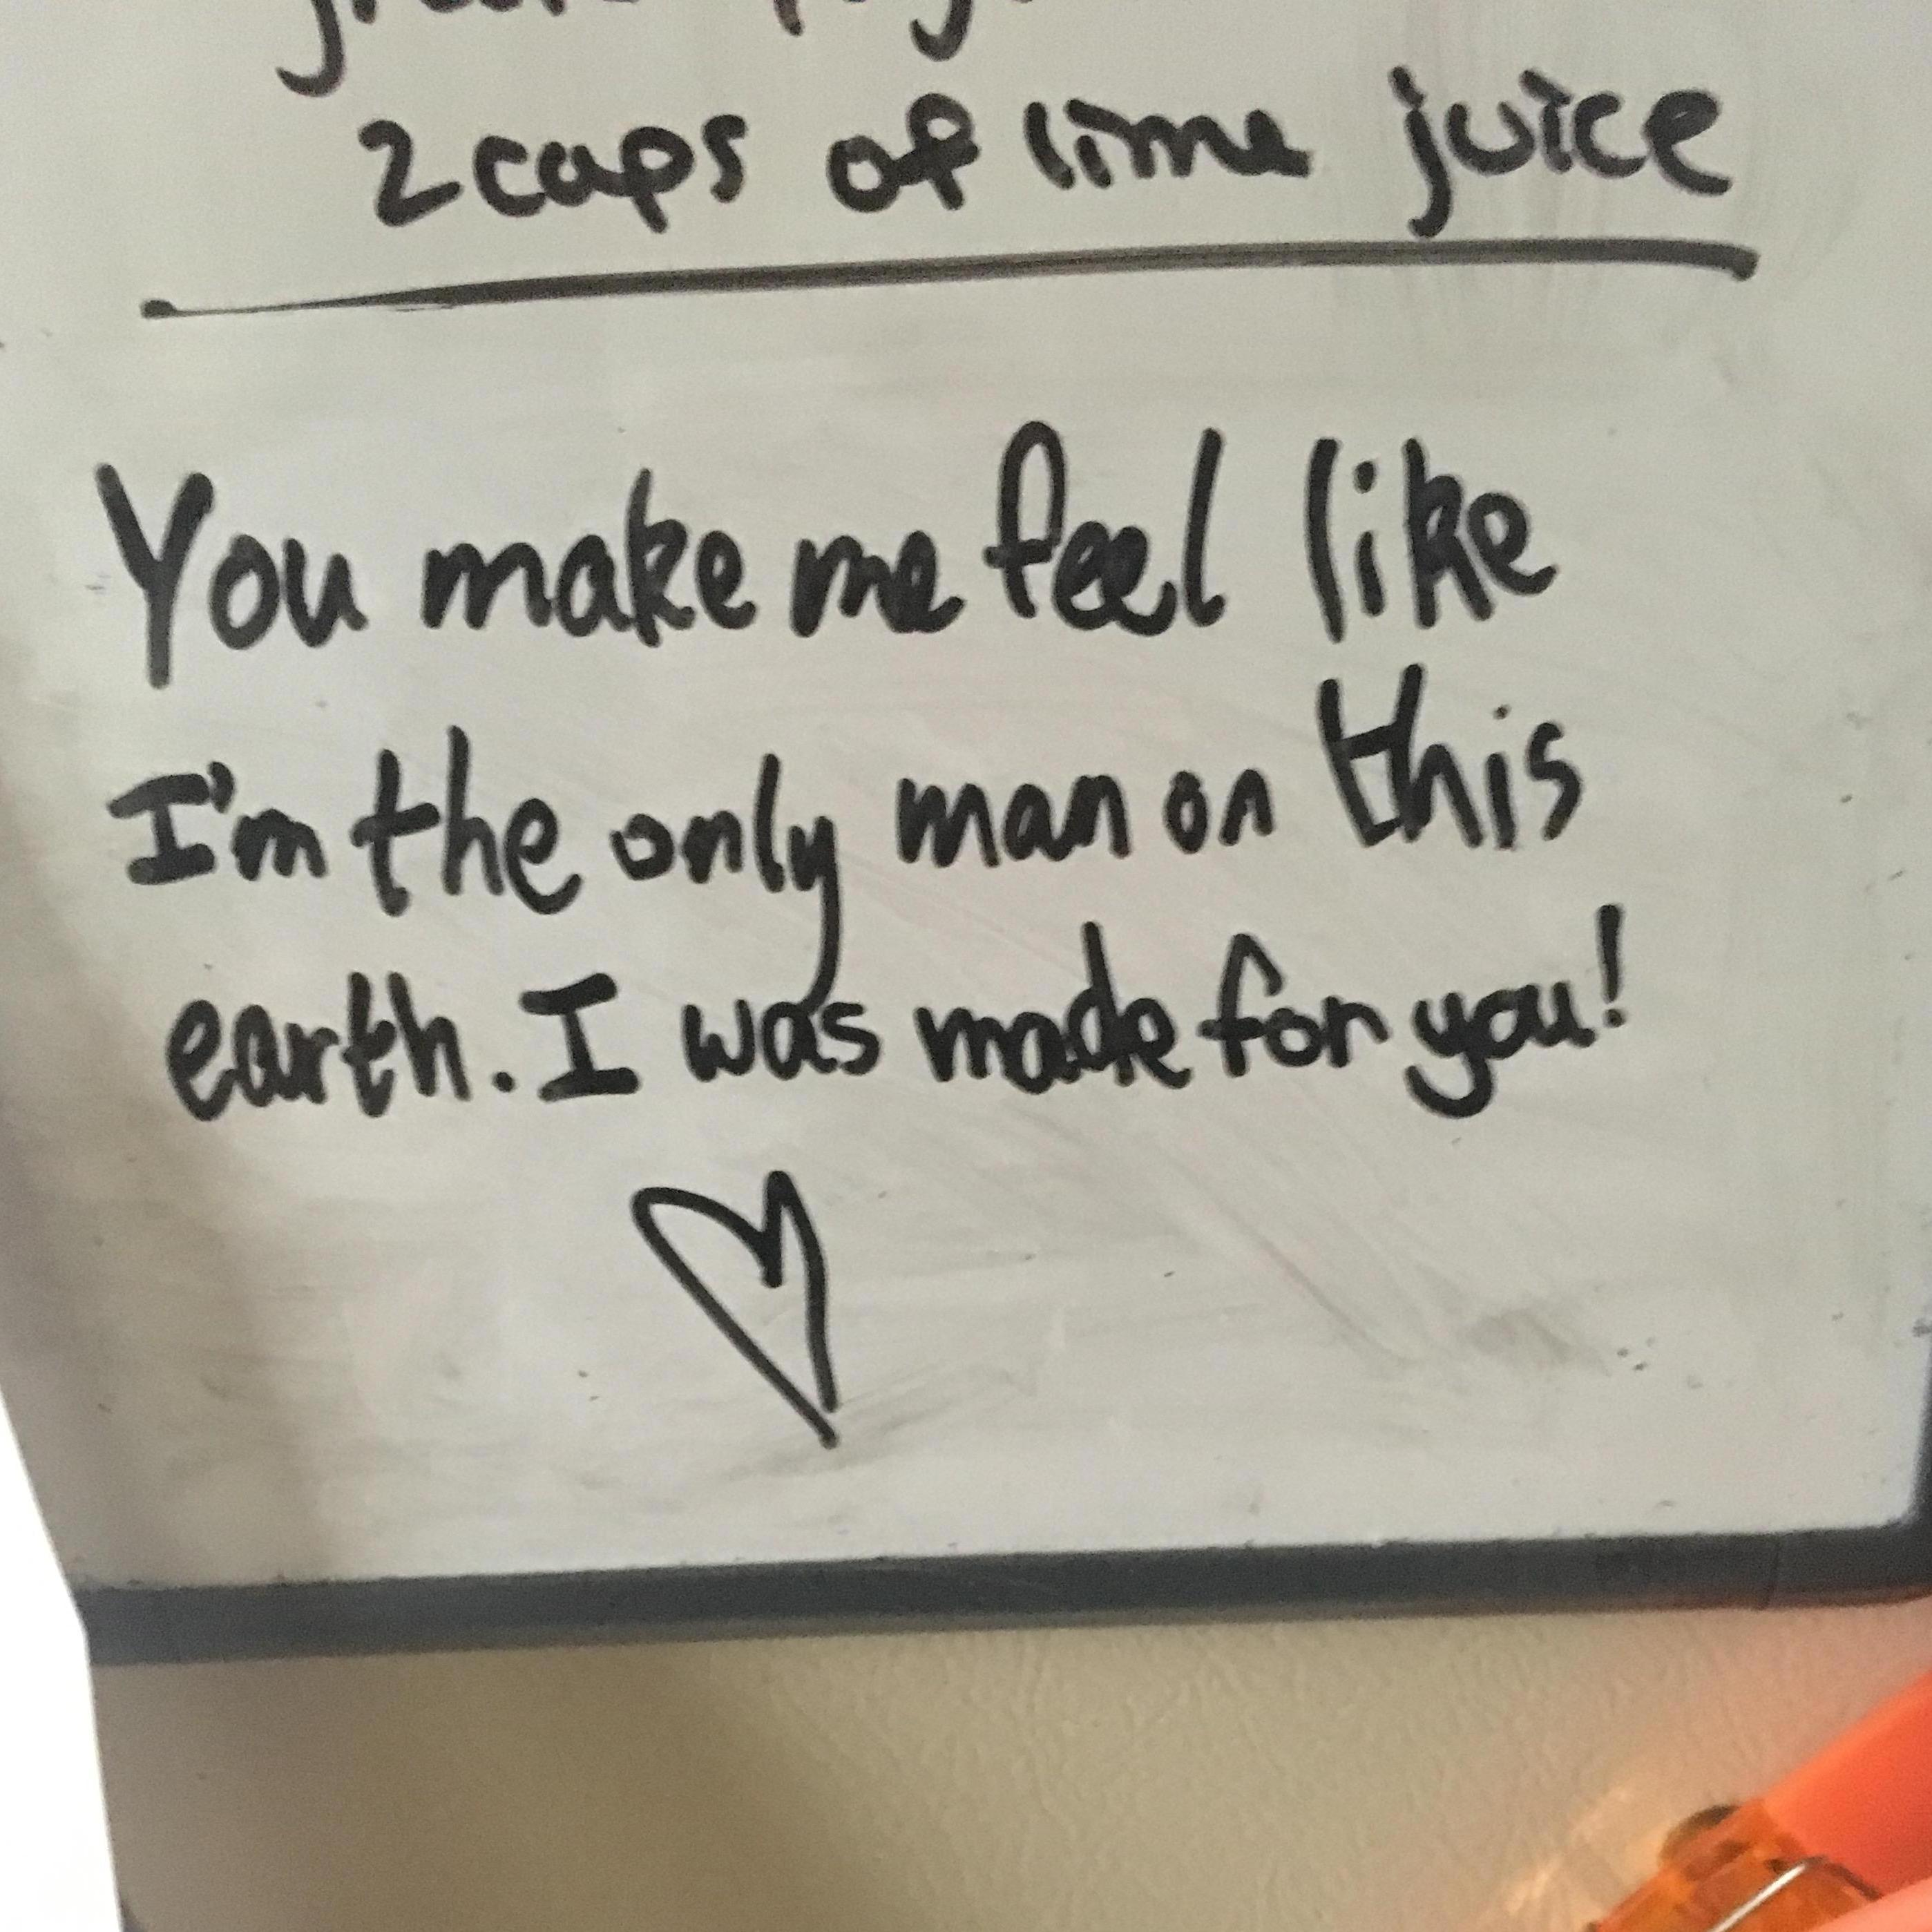 2 caps of lime juice
You make me feel like
I'm the only man on this
earth. I was made for you!